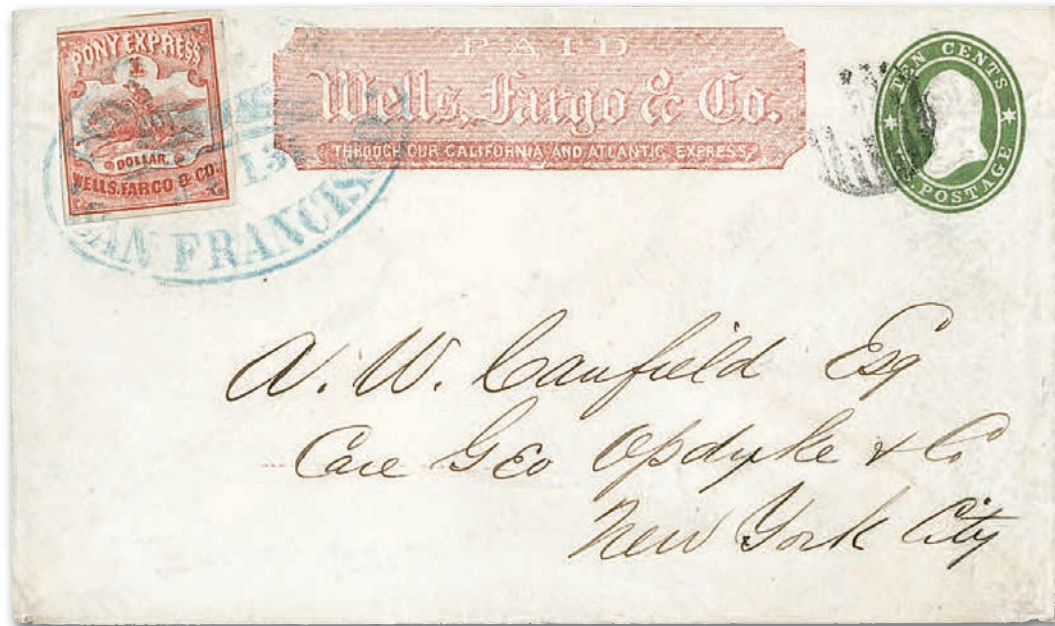 PONY EXPRESS
1
DOLLAR.
WELLS, FARGO & CO.
SAN FRANCISCO
PAID
Wells, Fargo & Co.
THROUGH OUR CALIFORNIA AND ATLANTIC EXPRESS.
TEN CENTS
U.S. POSTAGE
A. W. Canfield Esq
Care Geo Opdyke & Co
New York City